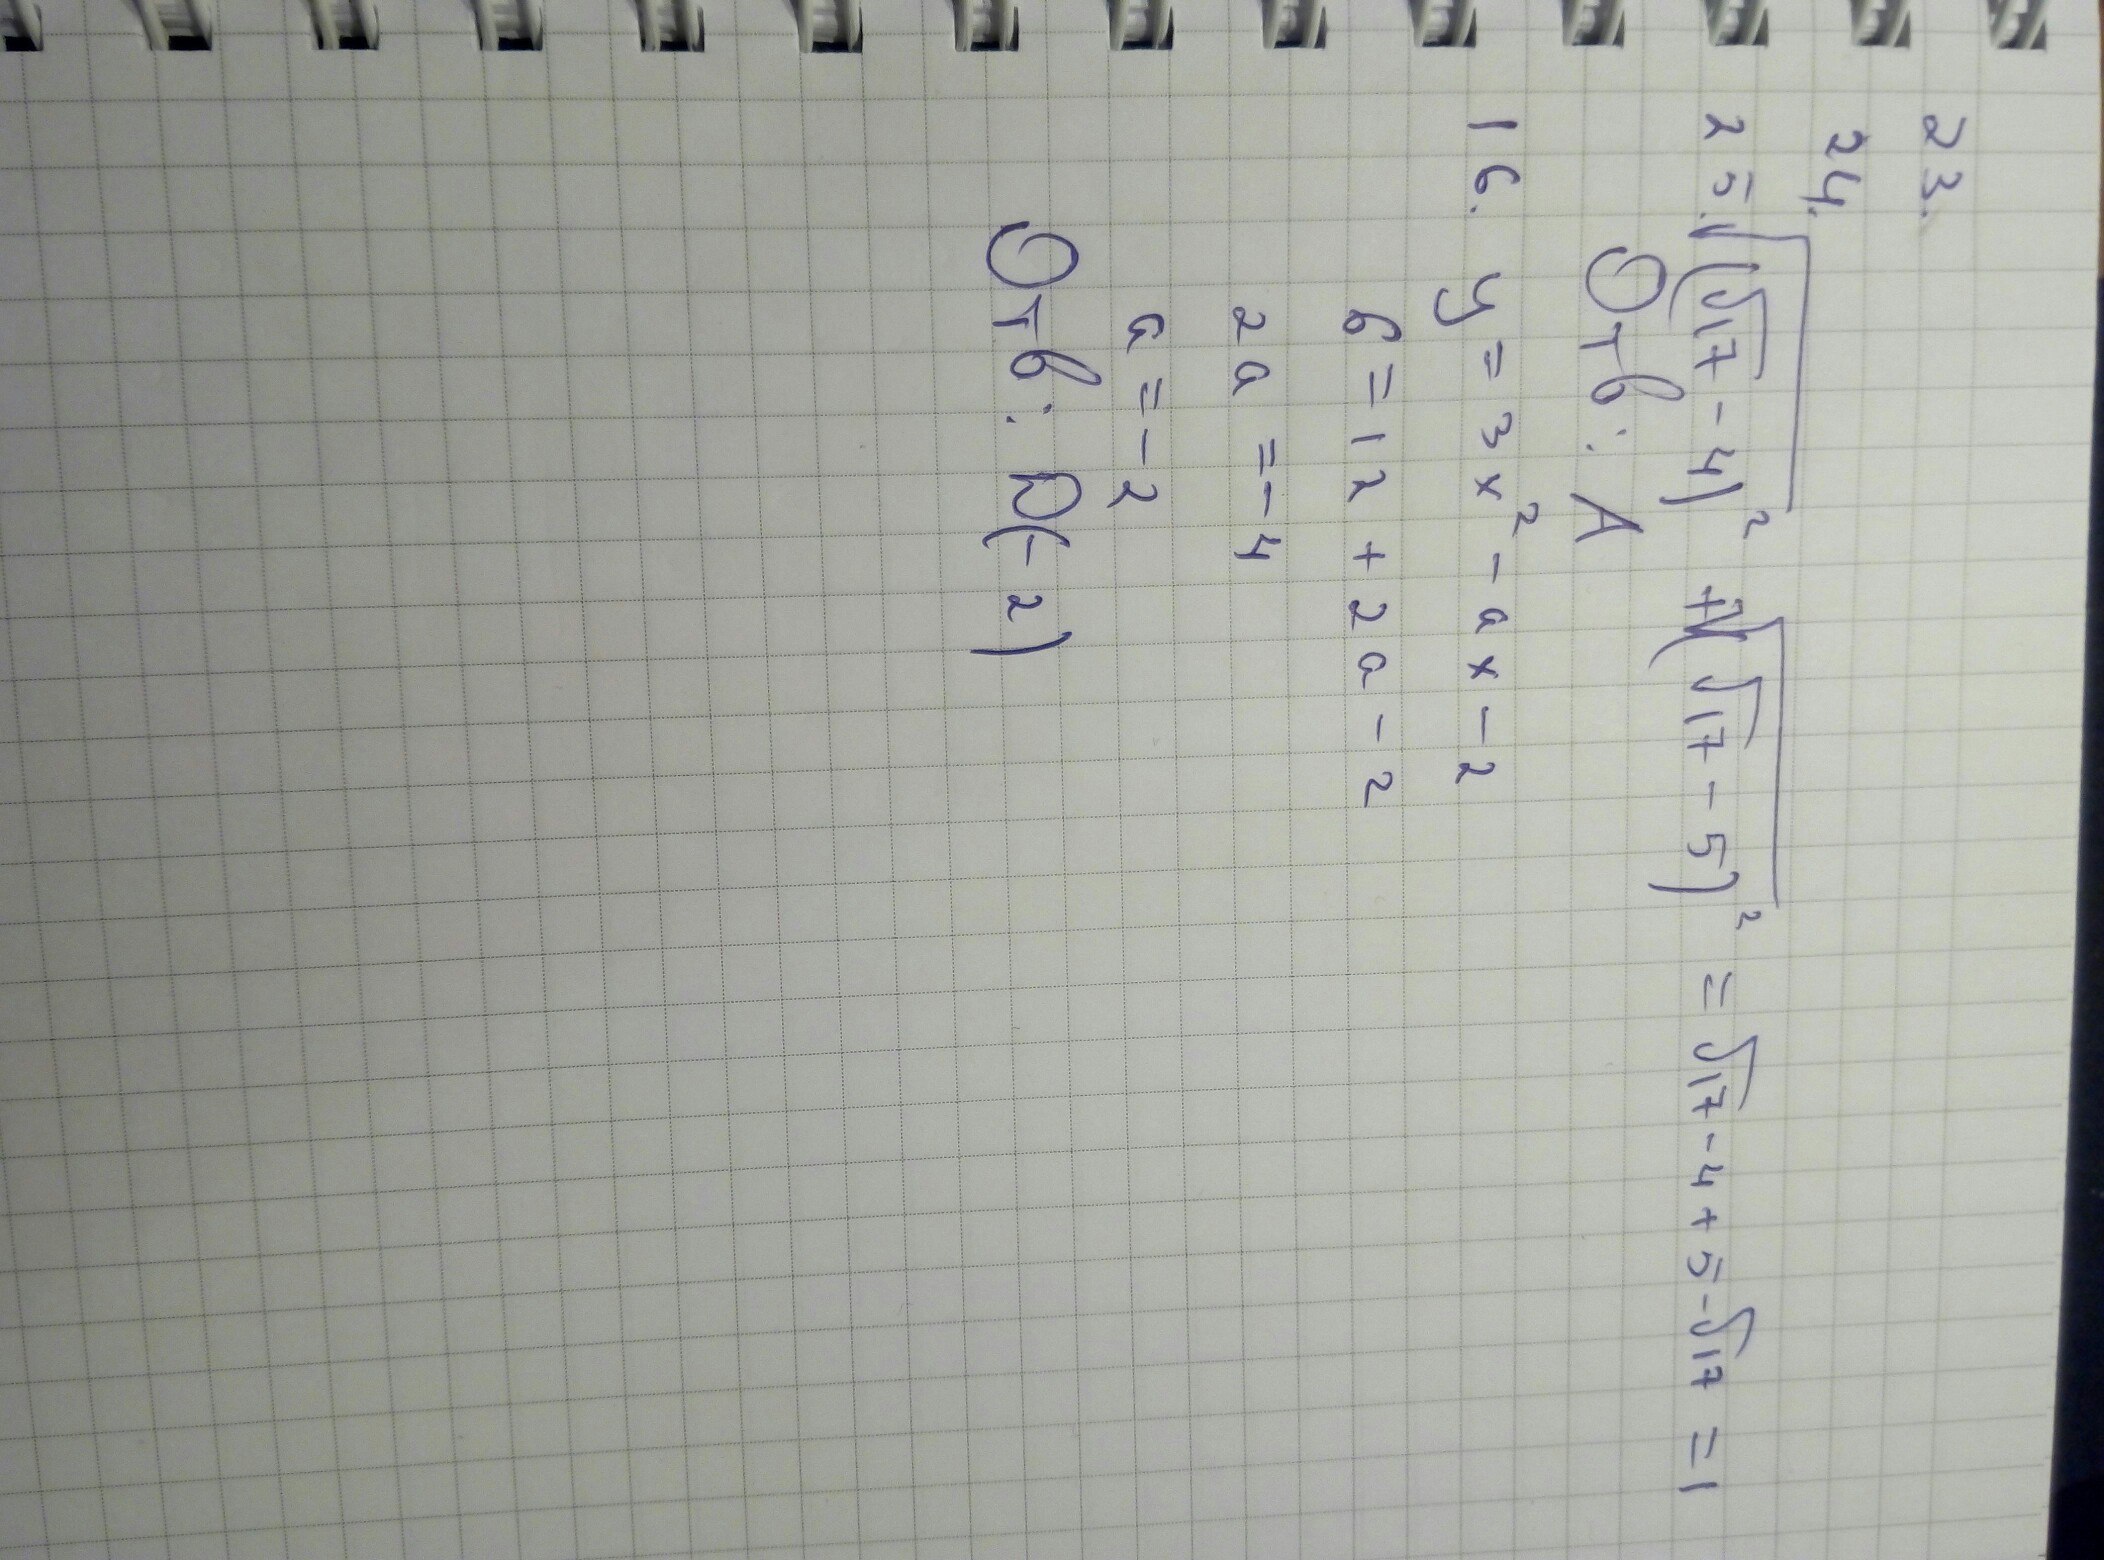 23.
24.
25. √(√17 - 4)² + √(√17 - 5)² = √17 - 4 + 5 - √17 = 1
Отв: А
16. y = 3x² - ax - 2
6 = 12 + 2a - 2
2a = -4
a = -2
Отв: D(-2)